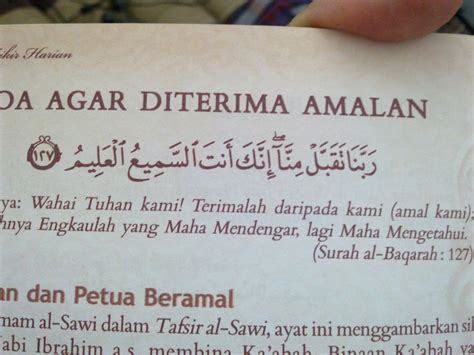 Zikir Harian
DOA AGAR DITERIMA AMALAN
رَبَّنَا تَقَبَّلْ مِنَّآ ۖ إِنَّكَ أَنتَ ٱلسَّمِيعُ ٱلْعَلِيمُ ١٢٧
ya: Wahai Tuhan kami! Terimalah daripada kami (amal kami);
hnya Engkaulah yang Maha Mendengar, lagi Maha Mengetahui.
(Surah al-Baqarah : 127)
an dan Petua Beramal
mam al-Sawi dalam Tafsir al-Sawi, ayat ini menggambarkan
Nabi Ibrahim a.s. membina Ka'abah. Binaan Ka'abah